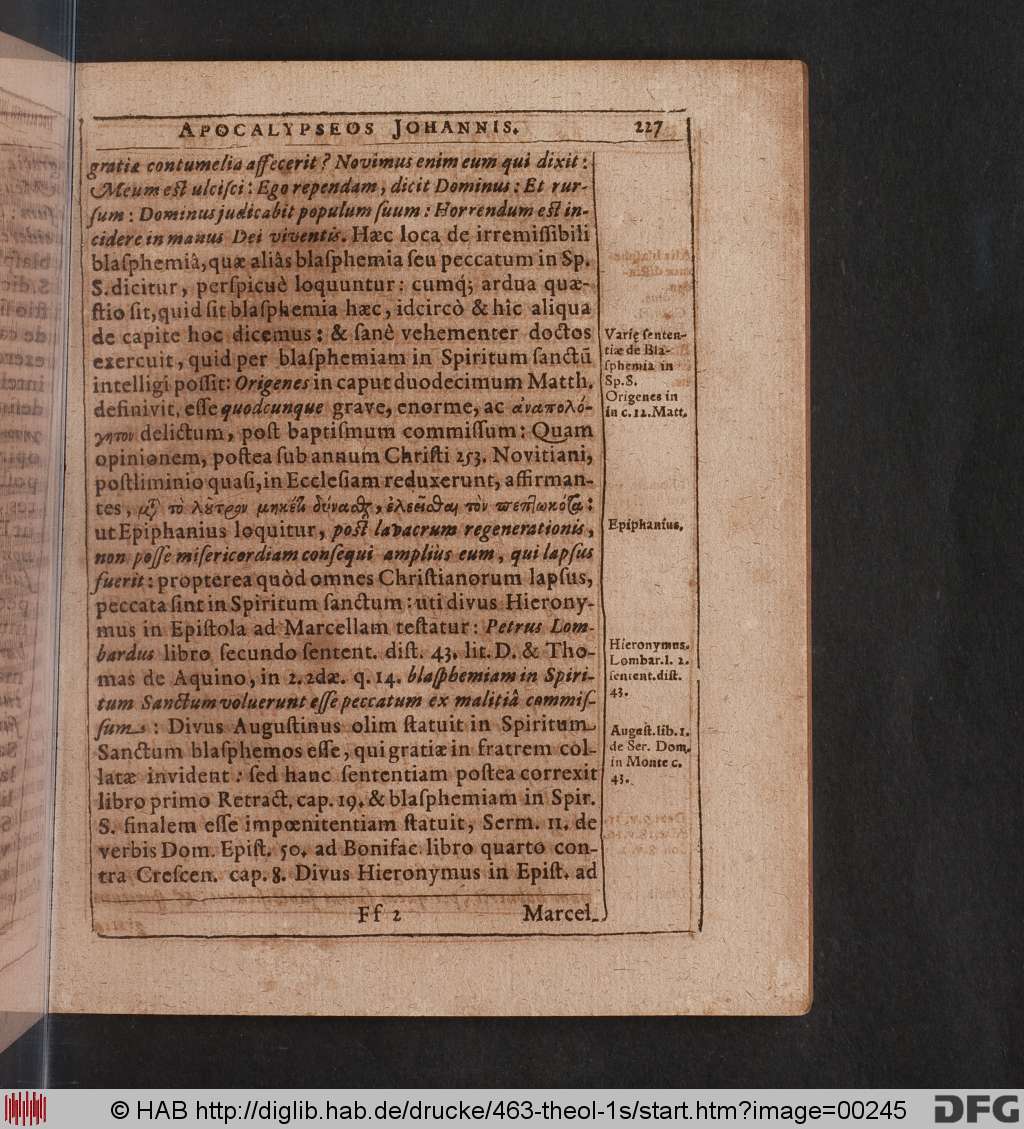 APOCALYPSEOS JOHANNIS. 227
gratiæ contumelia affecerit? Novimus enim eum qui dixit:
Meum est ulciſci: Ego rependam, dicit Dominus: Et rur-
ſum: Dominus judicabit populum ſuum: Horrendum eſt in-
cidere in manus Dei viventis. Hæc loca de irremiſſibili
blaſphemiâ, quæ aliàs blaſphemia ſeu peccatum in Sp.
S. dicitur, perſpicuè loquuntur: cumq́; ardua quæ-
ſtio ſit, quid ſit blaſphemia hæc, idcircò & hîc aliqua
de capite hoc dicemus: & ſanè vehementer doctos
exercuit, quid per blaſphemiam in Spiritum ſanctũ
intelligi poſſit: Origenes in caput duodecimum Matth.
definivit, eſſe quodcunque grave, enorme, ac ἀναπολό-
γητον delictum, poſt baptiſmum commiſſum: Quam
opinionem, poſtea ſub annum Chriſti 253. Novitiani,
poſtliminio quaſi, in Eccleſiam reduxerunt, affirman-
tes, μζ τὸ λȣτρον μηκέτι δύναϑζ, ἐλεεῖσθαι τὸν πεπτωκότα:
ut Epiphanius loquitur, poſt lavacrum regenerationis,
non poſſe miſericordiam conſequi amplius eum, qui lapſus
fuerit: propterea quòd omnes Chriſtianorum lapſus,
peccata ſint in Spiritum ſanctum: uti divus Hierony-
mus in Epiſtola ad Marcellam teſtatur: Petrus Lom-
bardus libro ſecundo ſentent. diſt. 43. lit. D. & Tho-
mas de Aquino, in 2. 2dæ. q. 14. blaſphemiam in Spiri-
tum Sanctum voluerunt eſſe peccatum ex malitiâ commiſ-
ſum: Divus Auguſtinus olim ſtatuit in Spiritum
Sanctum blaſphemos eſſe, qui gratiæ in fratrem col-
latæ invident: ſed hanc ſententiam poſtea correxit
libro primo Retract. cap. 19. & blaſphemiam in Spir.
S. finalem eſſe impœnitentiam ſtatuit, Serm. 11. de
verbis Dom. Epiſt. 50. ad Bonifac. libro quarto con-
tra Creſcen. cap. 8. Divus Hieronymus in Epiſt. ad
Ff 2 Marcel.
Varię ſenten-
tiæ de Bla-
ſphemia in
Sp. S.
Origenes in
in c. 12. Matt.
Epiphanius.
Hieronymus.
Lombar. l. 2.
ſentent. diſt.
43.
Auguſt. lib. 1.
de Ser. Dom.
in Monte c.
43.
© HAB http://diglib.hab.de/drucke/463-theol-1s/start.htm?image=00245
DFG